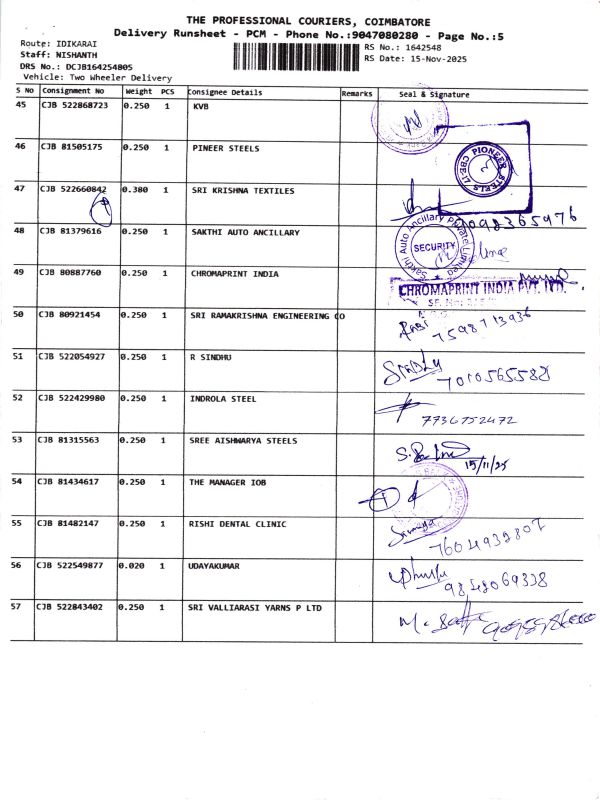 THE PROFESSIONAL COURIERS, COIMBATORE
Delivery Runsheet - PCM - Phone No.:9047080280 - Page No.:5
Route: IDIKARAI
RS No.: 1642548
Staff: NISHANTH
RS Date: 15-Nov-2025
DRS No.: DCJB164254805
Vehicle: Two Wheeler Delivery
S No Consignment No Weight PCS Consignee Details Remarks Seal & Signature
45 CJB 522868723 0.250 1 KVB
46 CJB 81505175 0.250 1 PINEER STEELS
PIONEER STEELS
47 CJB 522660842 0.380 1 SRI KRISHNA TEXTILES
48 CJB 81379616 0.250 1 SAKTHI AUTO ANCILLARY
Sakthi Auto Ancillary Private Limited
SECURITY
49 CJB 80887760 0.250 1 CHROMAPRINT INDIA
CHROMAPRINT INDIA PVT. LTD.
50 CJB 80921454 0.250 1 SRI RAMAKRISHNA ENGINEERING CO
7598713936
51 CJB 522054927 0.250 1 R SINDHU
7010565582
52 CJB 522429980 0.250 1 INDROLA STEEL
7736752472
53 CJB 81315563 0.250 1 SREE AISHWARYA STEELS
15/11/25
54 CJB 81434617 0.250 1 THE MANAGER IOB
55 CJB 81482147 0.250 1 RISHI DENTAL CLINIC
7604932807
56 CJB 522549877 0.020 1 UDAYAKUMAR
9848069338
57 CJB 522843402 0.250 1 SRI VALLIARASI YARNS P LTD